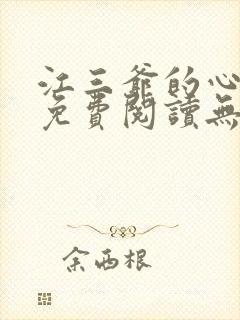 江三爺的心
免費閱讀無
余西根